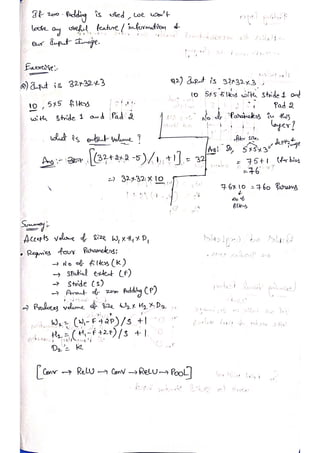 If zero-Padding is used, we won't
loose any useful feature/information of
our Input Image.
Exercise:-
Q) Input is 32*32*3
10, 5x5 filters
with stride 1 and Pad 2
what is output volume ?
Ans:- [(32+2*2-5)/1 +1] = 32
=> 32*32*10
Q2) Input is 32*32*3
10 5*5 filters with stride 1 and
Pad 2
No of Parameters in this
layer?
Ans: 5*5*3
= 75+1 for bias
= 76
76*10 = 760 Params
no of
filters
Summary:-
Accepts volume of size W1 x H1 x D1
• Requires four Parameters:
→ No of filters (K)
→ Spatial extent (F)
→ Stride (S)
→ Amount of zero Padding (P)
→ Produces volume of size W2 x H2 x D2
W2 = (W1-F+2P)/S +1
H2 = (H1-F+2P)/S +1
D2 = K
[Conv → ReLU → Conv → ReLU → POOL]